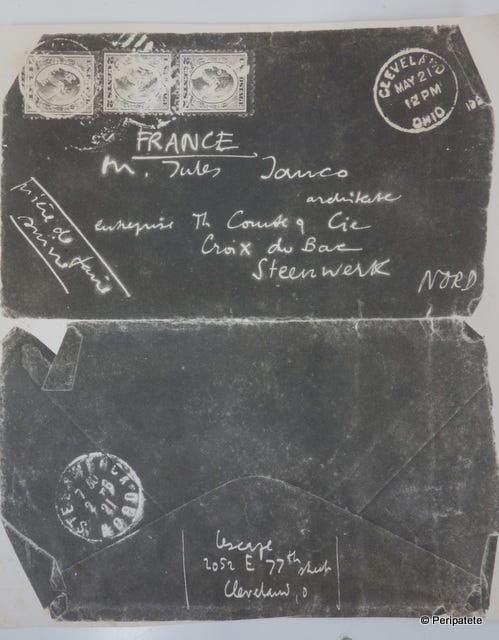 CLEVELAND
MAY 21
12 PM
OHIO
FRANCE
M. Jules Janco
architecte
entreprise Th Comte & Cie
Croix du Bac
Steenwerk
NORD
prière de faire
suivre
STEENWERCK
NORD
Lescaze
2052 E 77th street
Cleveland, O
© Peripatete